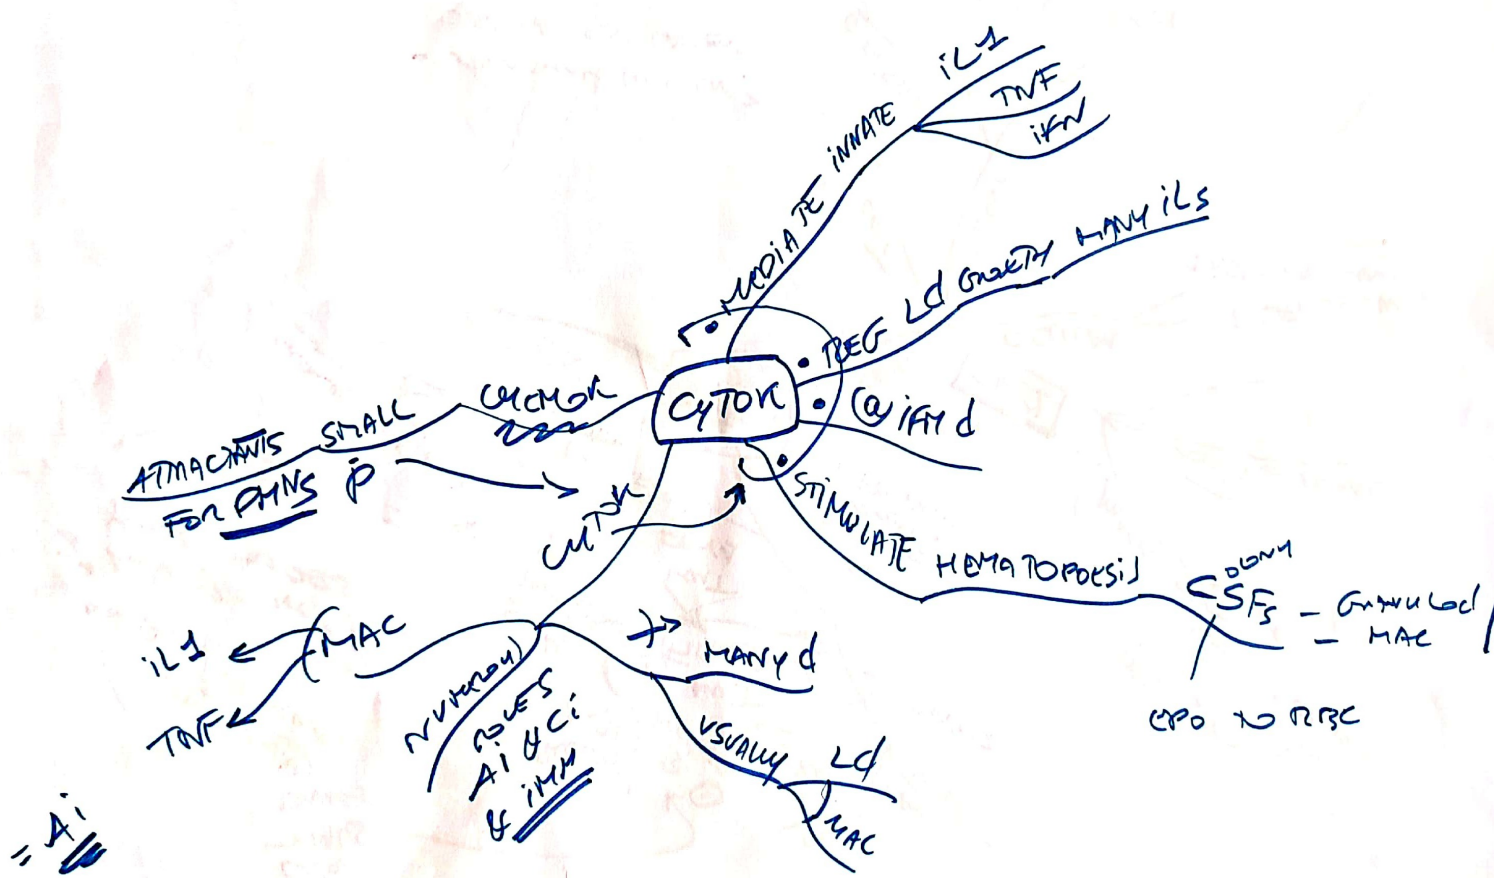 iL1
TNF
iFN
MEDIATE INNATE
REG Ld GROWTH MANY iLs
CYTOK
@ iFM d
STIMULATE HEMATOPOESIS
CSFs
COLONY
- GRANULOd
- MAC
EPO TO RBC
CHEMOK
SMALL
ATTRACTANTS
FOR PMNS
CYTOK
MAC
iL1
TNF
NUMEROUS
ROLES
Ai & Ci
& iMM
MANY d
USUALLY
Ld
MAC
= Ai